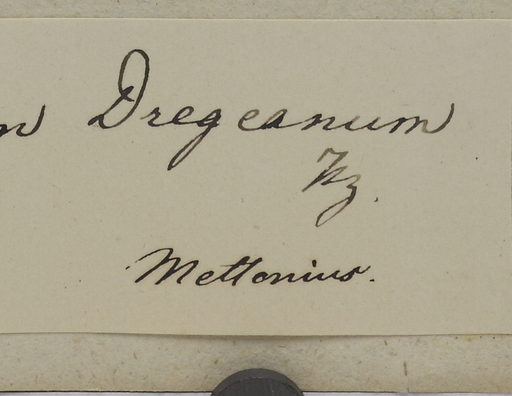 n Dregeanum
Kz.
Mettenius.